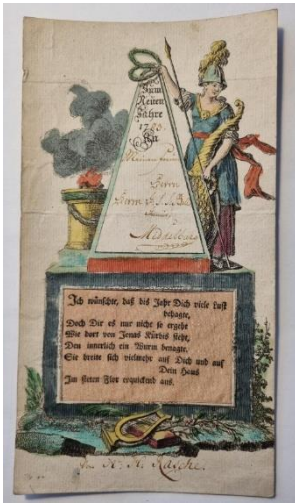 Zum
Neuen
Jahre
1785.
An
Meinen Freund
Herrn
Herrn
Ich wünschte, daß dis Jahr Dich viele Lust
behagte,
Doch Dir es nur nicht so ergeht
Wie dort von Jonas Kürbis steht,
Den innerlich ein Wurm benagte.
Sie breite sich vielmehr auf Dich und auf
Dein Haus
Im steten Flor erquickend aus.
von